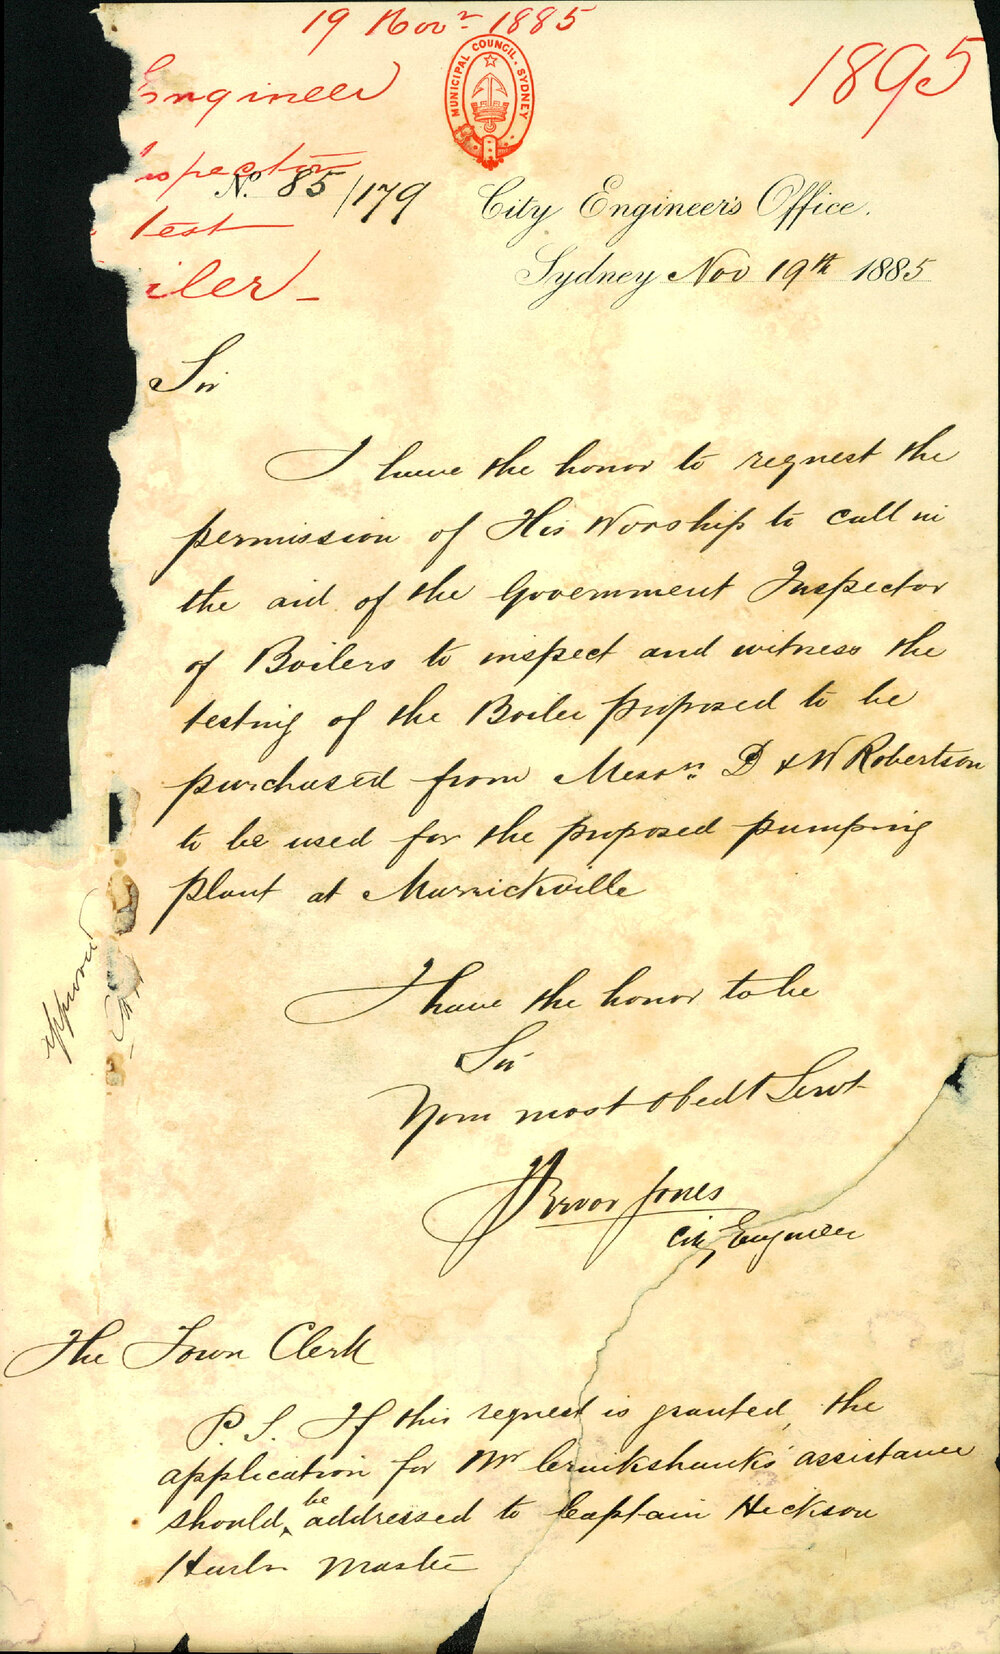 19 Novr 1885
1895
Engineer
MUNICIPAL COUNCIL. SYDNEY
Inspection
No. 85/179
City Engineer's Office.
test
Sydney Nov 19th 1885
iler
Sir
I have the honor to request the
permission of His Worship to call in
the aid of the Government Inspector
of Boilers to inspect and witness the
testing of the Boiler proposed to be
purchased from Messrs. D & W Robertson
to be used for the proposed pumping
plant at Marrickville
approved
I have the honor to be
Sir
Your most obedt Servt
Trevor Jones
City Engineer
The Town Clerk
P.S. If this request is granted, the
application for Mr Cruikshanks' assistance
should be addressed to Captain Hickson
Harbr Master